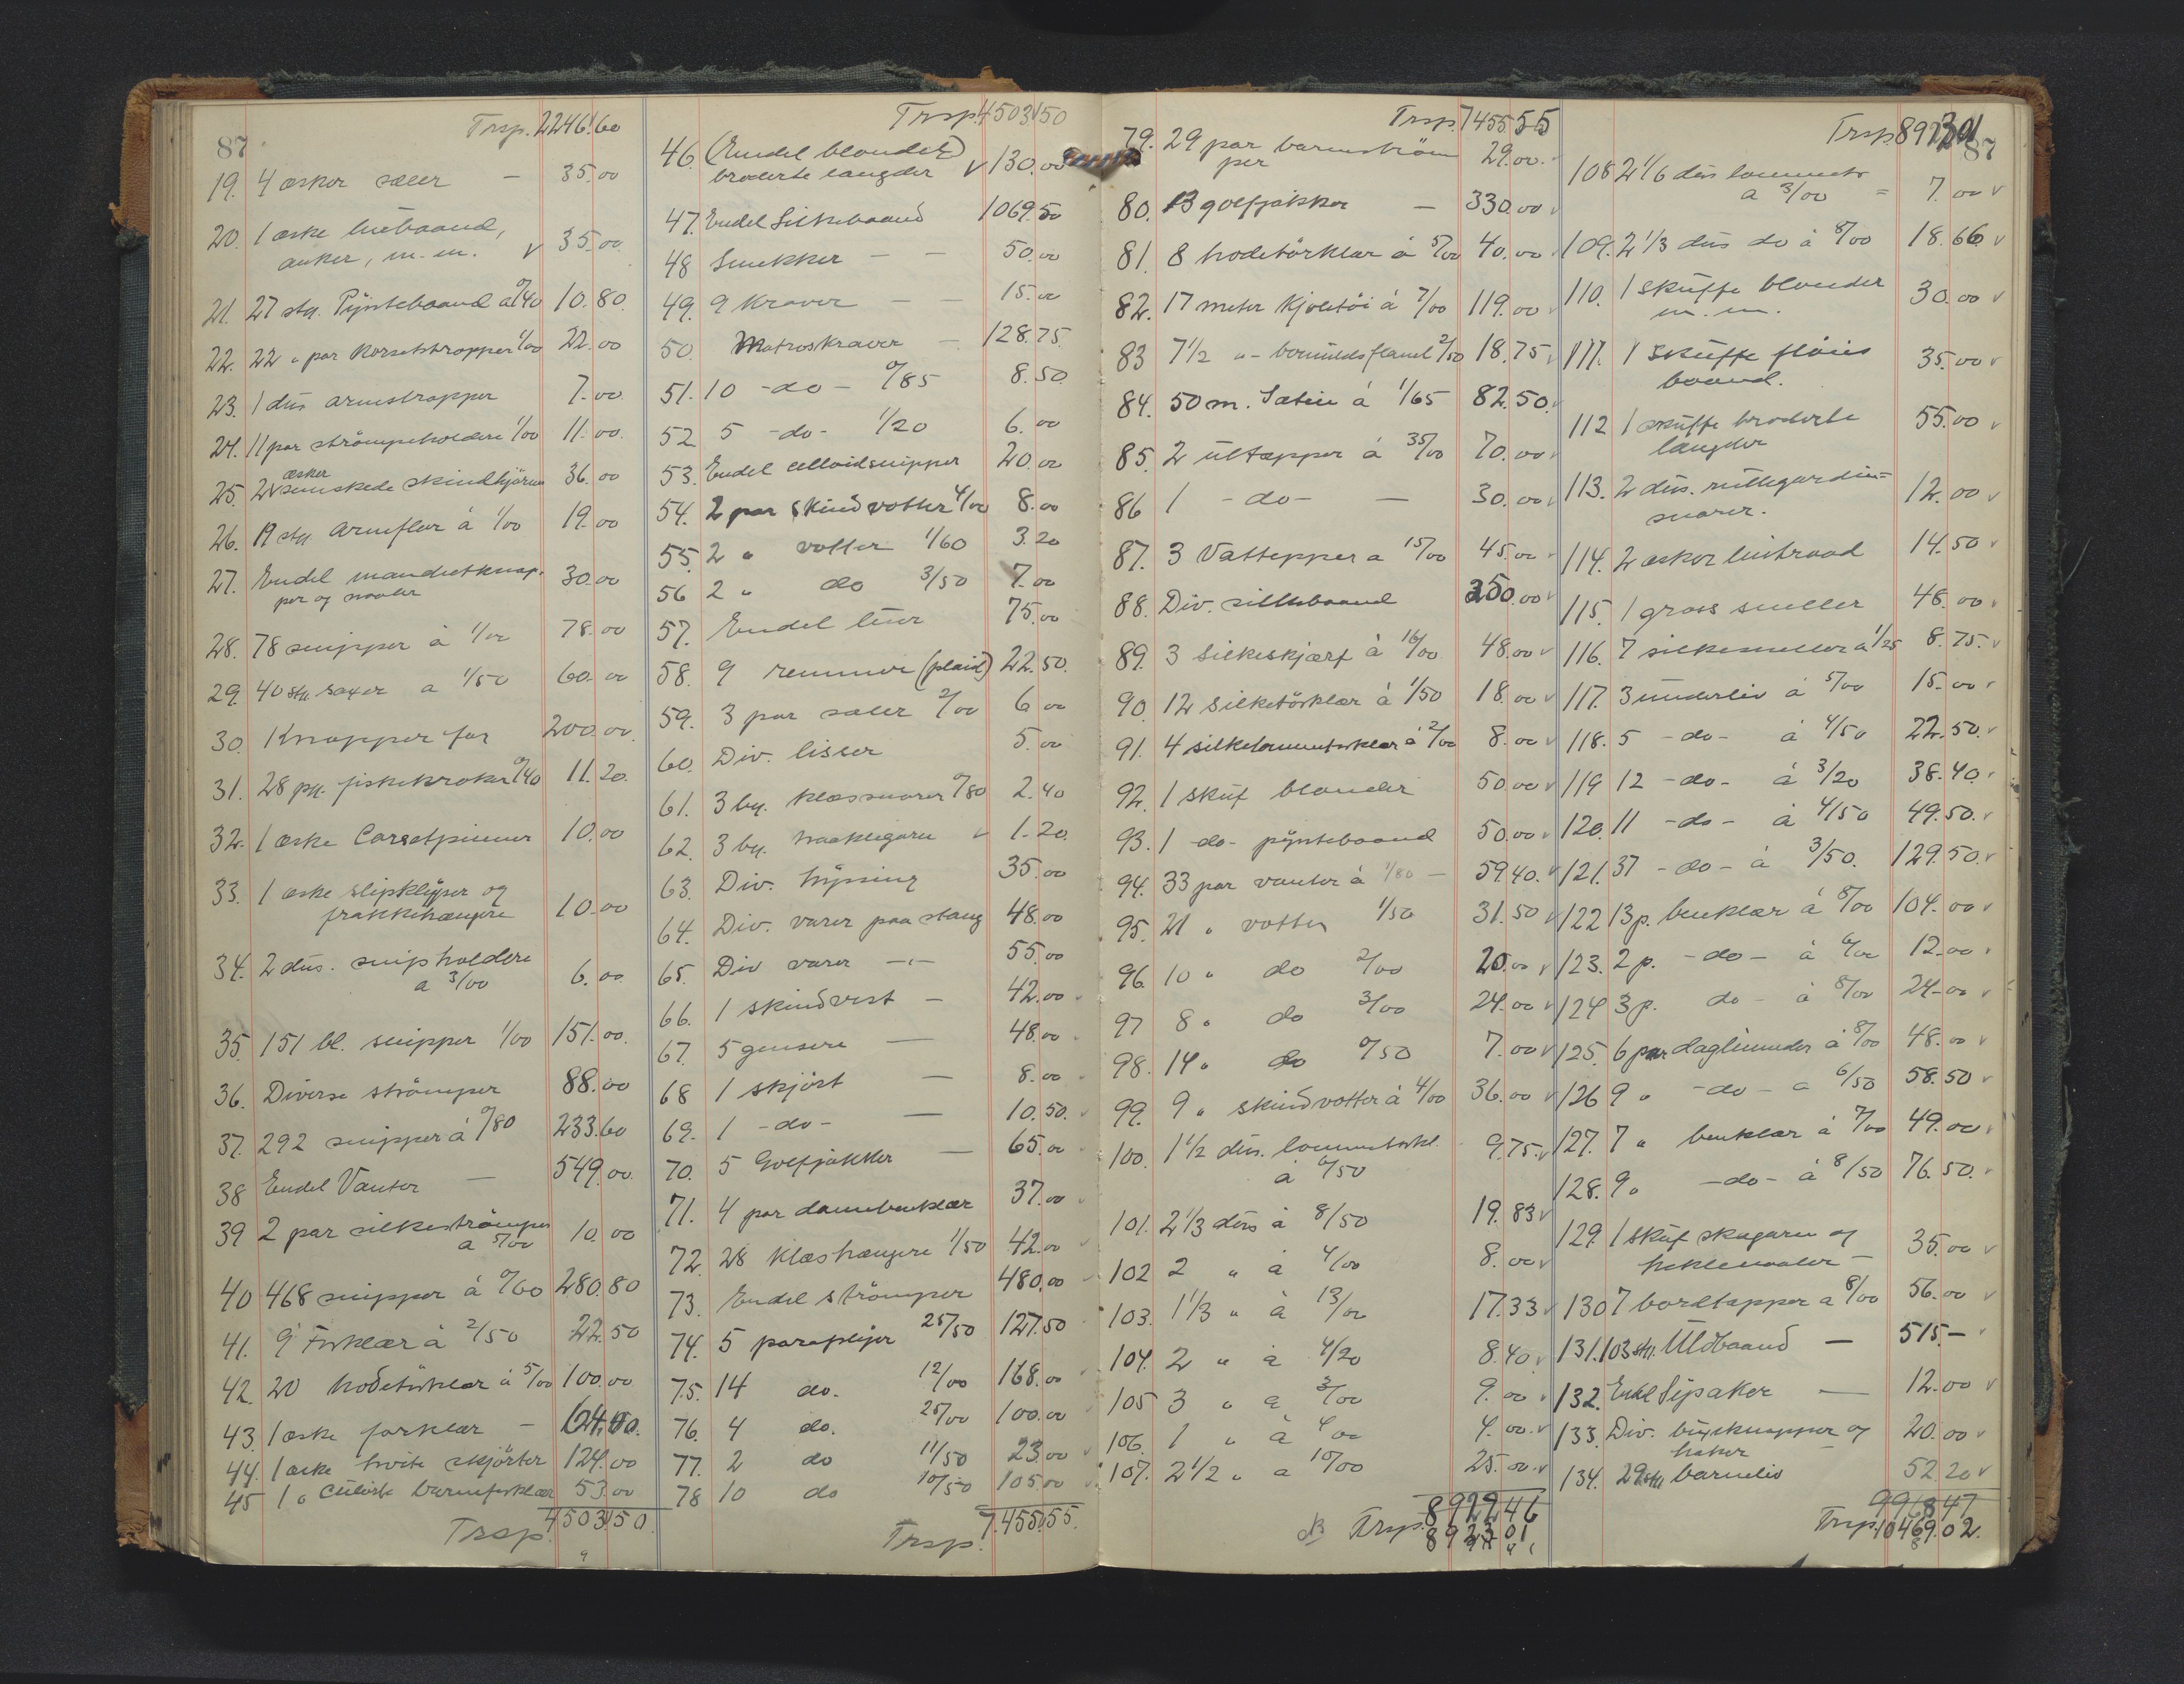 87
Trsp. 2246.60
19. 4 æsker sæler — 35.00
20. 1 æske
anker, m.m. v 35.00
21. 27 stq. Pÿntebaand a 0/40 10.80
22. 22 " par Korsetstropper 1/00 22.00
23. 1 dus armstropper 7.00
24. 11 par strömpeholdere 1/00 11.00
æsker
25. 2 v semskede skind 36.00
26. 19 stq à 1/00 19.00
27. Endel
per og naaler 30.00
28. 78 snipper à 1/00 78.00
29. 40 stk. saxer a 1/50 60.00
30. Knapper for 200.00
31. 28 pk. fiskekroker 0/40 11.20
32. 1 æske Corsetpinner 10.00
33. 1 æske slipsklÿper og
frakkehængere 10.00
34. 2 dus. snipholdere
a 3/00 6.00
35. 151 bl. snipper 1/00 151.00
36. Diverse strömper 88.00
37. 292 snipper à 0/80 233.60
38 Endel Vanter — 549.00
39 2 par silkeströmper
a 5/00 10.00
40 468 snipper à 0/60 280.80
41. 9 Forklær à 2/50 22.50
42. 20 hodetörklær à 5/00 100.00
43. 1 æske forklær —
44. 1 æske hvite skjörter 124.00
45 1 " barneforklær 53.00
Trsp. 4503.50
Trsp. 4503.50
46. (Endel blonder)
broderte længder v 130.00
47. Endel Silkebaand 1069.50
48 Smekker — — 50.00
49. 9 Kraver — — 15.00
50. Matroskraver — 128.75
51. 10 -do- 0/85 8.50
52 5 -do- 1/20 6.00
53. Endel celloidsnipper 20.00
54. 2 par skindvotter 4/00 8.00
55. 2 " votter 1/60 3.20
56 2 " do 3/50 7.00
57. Endel luer 75.00
58. 9 remmer (plaid) 22.50
59. 3 par sæler 2/00 6.00
60. Div. lisser 5.00
61. 3 by. klæssnorer 0/80 2.40
62. 3 by. hæklegarn v 1.20
63. Div. 35.00
64. Div. varer paa stang 48.00
65. Div varer -"- 55.00
66. 1 skindvest — 42.00
67. 5 gensere — 48.00
68 1 skjört — 8.00
69. 1 -do- — 10.50
70. 5 Golfjakker — 65.00
71. 4 par damebenklær 37.00
72. 28 klæshængere 1/50 42.00
73. Endel strömper 480.00
74. 5 paraplÿer 25/50 127.50
75. 14 do. 12/00 168.00
76. 4 do. 25/00 100.00
77. 2 do 11/50 23.00
78 10 do 10/50 105.00
Trsp. 7.455.55
Trsp. 7455.55
79. 29 par barneström
per 29.00
80. 13 golfjakker — 330.00
81. 8 hodetörklær à 5/00 40.00
82. 17 meter Kjoletöi à 7/00 119.00
83 7 1/2 " bomuldsflanel 2/50 18.75
84. 50 m. Satin à 1/65 82.50
85. 2 ultæpper à 35/00 70.00
86 1 -do- — 30.00
87. 3 Vattepper a 15/00 45.00
88. Div. silkebaand 250.00
89. 3 Silkeskjærf à 16/00 48.00 v
90. 12 silketörklær à 1/50 18.00 v
91. 4 silkelommetørklær à 2/00 8.00 v
92. 1 skuf blonder 50.00 v
93. 1 -do- pÿntebaand 50.00 v
94. 33 par vanter à 1/80 — 59.40 v
95. 21 " votter 1/50 31.50 v
96. 10 " do 2/00 20.00 v
97 8 " do 3/00 24.00 v
98. 14 " do 0/50 7.00 v
99. 9 " skindvotter à 4/00 36.00 v
100. 1 1/2 dus. lommetørkl.
à 6/50 9.75 v
101. 2 1/3 dus à 8/50 19.83 v
102 2 " à 4/00 8.00 v
103. 1 1/3 " à 13/00 17.33 v
104. 2 " à 4/20 8.40 v
105 3 " a 3/00 9.00 v
106. 1 " à 4/00 4.00 v
107. 2 1/2 " a 10/00 25.00 v
892246
Trsp. 892301
87
Trsp. 892301
108 2 1/6 dus lommetr
a 3/00 = 7.00 v
109. 2 1/3 dus do à 8/00 18.66 v
110. 1 skuffe blonder
m.m. 30.00 v
111. 1 skuffe flöiels
baand. 35.00 v
112 1 skuffe broderte
længder 55.00 v
113. 2 dus. rullegardin=
snorer. 12.00 v
114. 2 æsker 14.50 v
115. 1 gross sneller 48.00 v
116. 7 silkesneller à 1/25 8.75 v
117. 3 underliv à 5/00 15.00 v
118. 5 -do- à 4/50 22.50 v
119 12 -do- à 3/20 38.40 v
120. 11 -do- à 4/50 49.50 v
121. 37 -do- à 3/50. 129.50 v
122 13 p. benklær à 8/00 104.00 v
123. 2 p. -do- à 6/00 12.00 v
124 3 p. do - à 8/00 24.00 v
125. 6 par daglinneder à 8/00 48.00 v
126 9 " -do- a 6/50 58.50 v
127. 7 " benklær à 7/00 49.00 v
128. 9 " -do- à 8/50 76.50 v
129. 1 skuf og
heklenaaler — 35.00 v
130 7 bordtæpper a 8/00 56.00 v
131. 103 stk. Uldbaand — 515.- v
132. Endel — 12.00 v
133. Div. buxeknapper og
haker — 20.00 v
134. 29 stk barneliv 52.20 v
996847
Trsp. 10469.02.